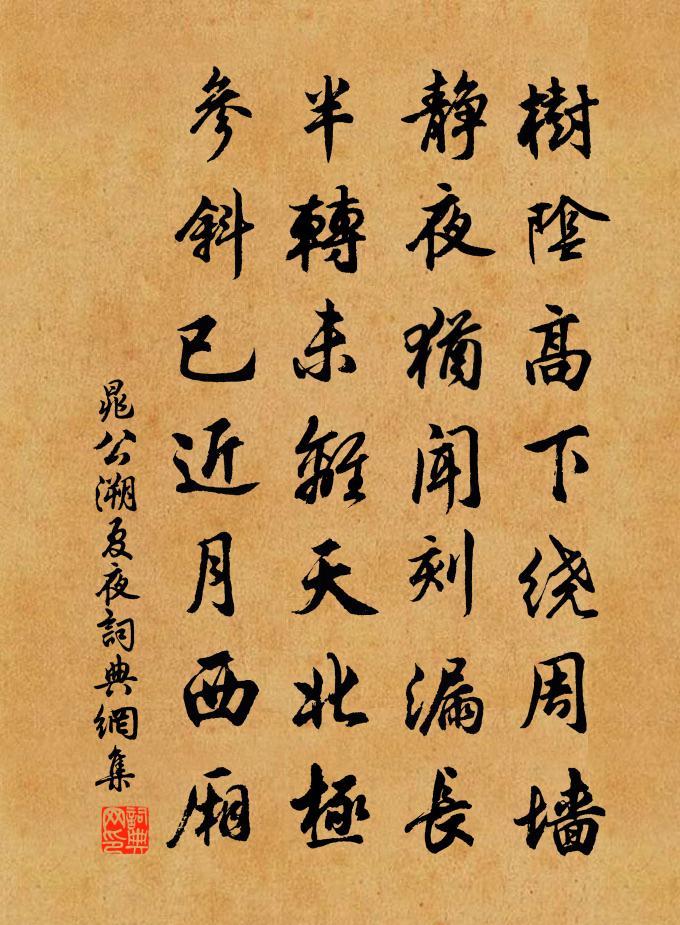 樹陰高下绕周墙
静夜猶闻刻漏長
半轉未離天北極
參斜已近月西厢
晁公溯夏夜詞典網集
詞典网印